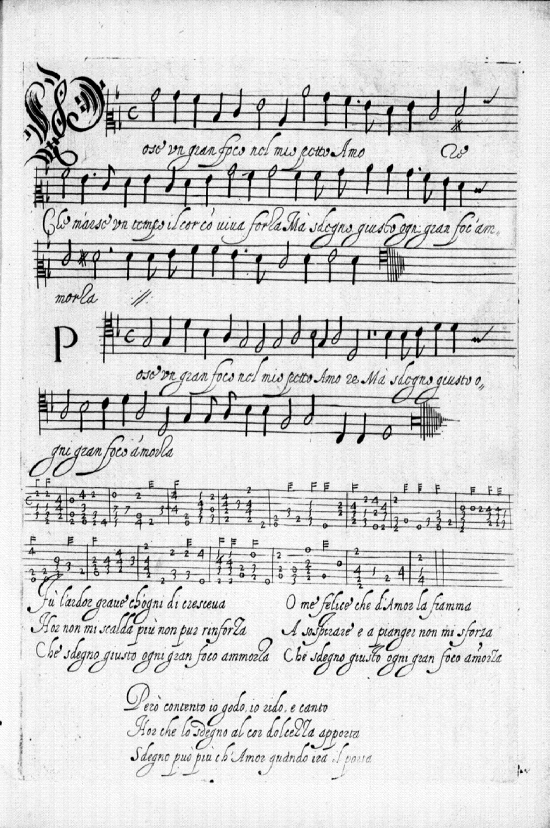 Pose vn gran foco nel mio petto Amo re
Che m'arse vn tempo il cor cō viua forza Ma sdegno giusto ogni gran foc' am-
morza //
Pose vn gran foco nel mio petto Amo re Ma sdegno giusto o-
gni gran foco amorza
Fu l'ardor graue ch'ogni dì cresceua
Hor non mi scalda più non pur rinforza
Che sdegno giusto ogni gran foco ammorza
O me felice che d'Amor la fiamma
A sospirare e a pianger non mi sforza
Che sdegno giusto ogni gran foco amorza
Però contento io godo, io rido, e canto
Hor che lo sdegno al cor dolcezza apporta
Sdegno può più ch'Amor quando ira il porta